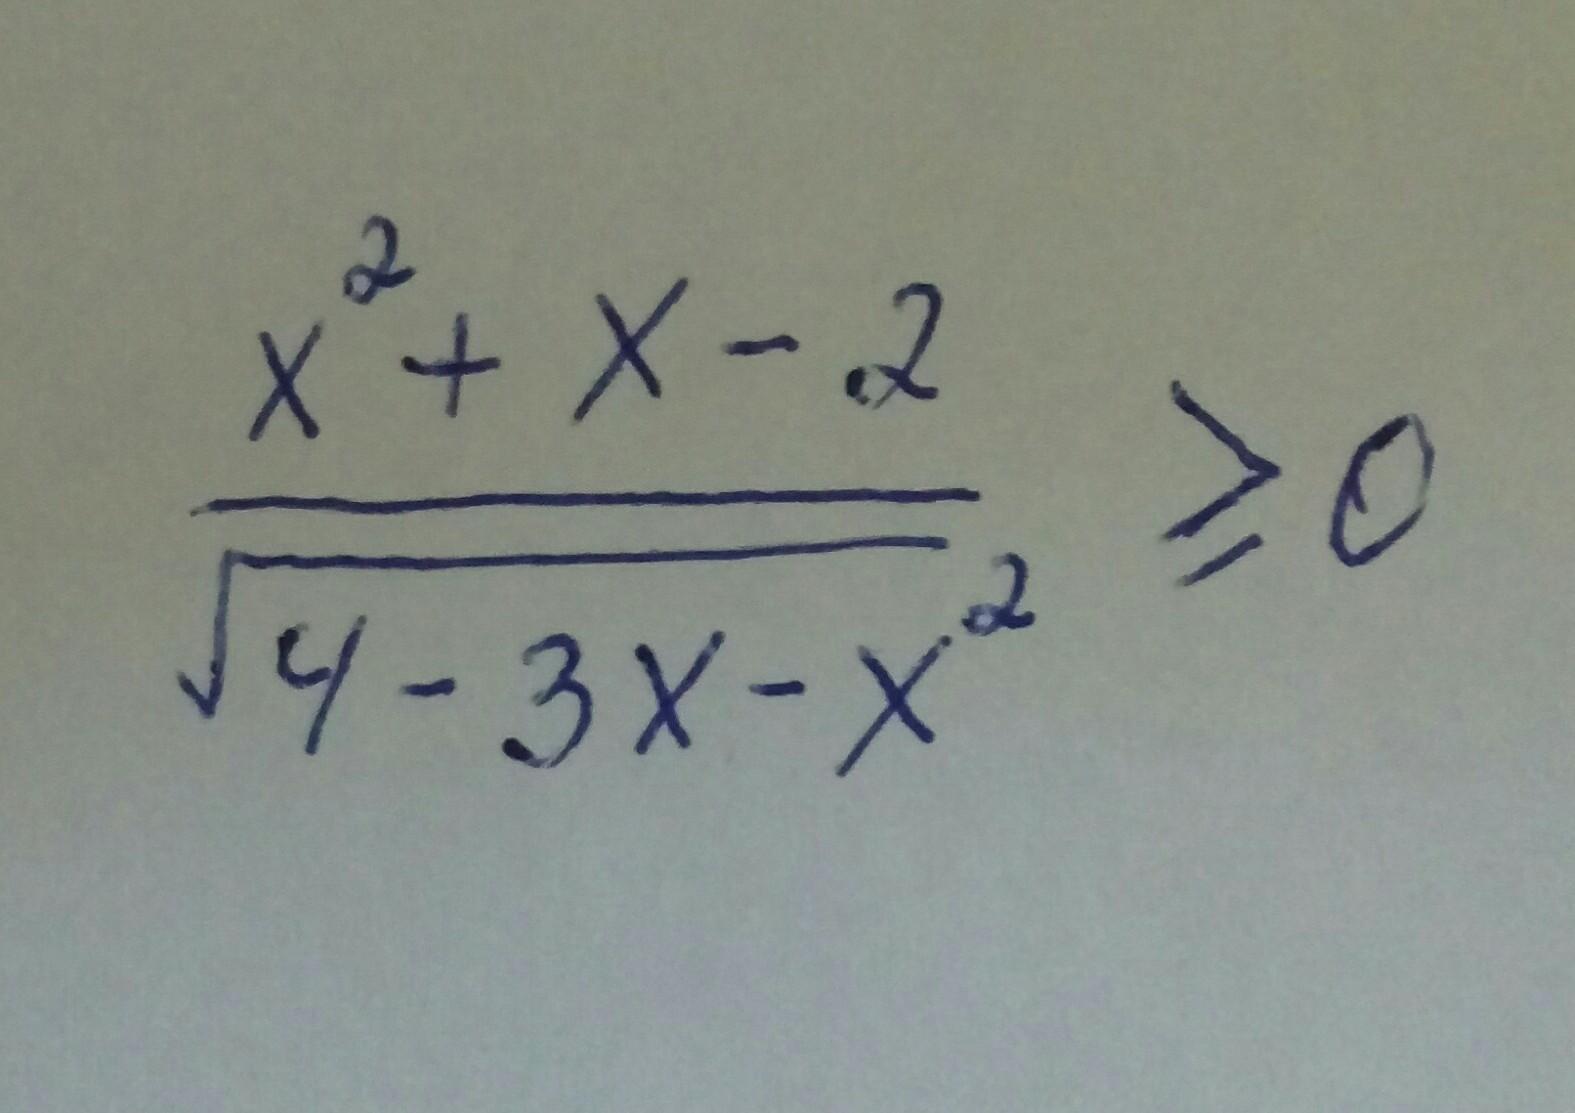 x² + x - 2
≥ 0
√4 - 3x - x²